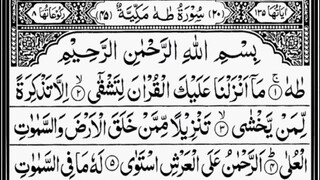 اٰیَاتُهَا ١٣٥ (٢٠) سُوْرَةُ طٰهٰ مَكِّيَّةٌ (٤٥) رُكُوْعَاتُهَا ٨
بِسْمِ اللّٰهِ الرَّحْمٰنِ الرَّحِيْمِ
طٰهٰ ① مَاۤ اَنْزَلْنَا عَلَيْكَ الْقُرْاٰنَ لِتَشْقٰۤى ② اِلَّا تَذْكِرَةً
لِّمَنْ يَّخْشٰى ③ تَنْزِيْلًا مِّمَّنْ خَلَقَ الْاَرْضَ وَالسَّمٰوٰتِ
الْعُلٰى ④ اَلرَّحْمٰنُ عَلَى الْعَرْشِ اسْتَوٰى ⑤ لَهٗ مَا فِى السَّمٰوٰتِ